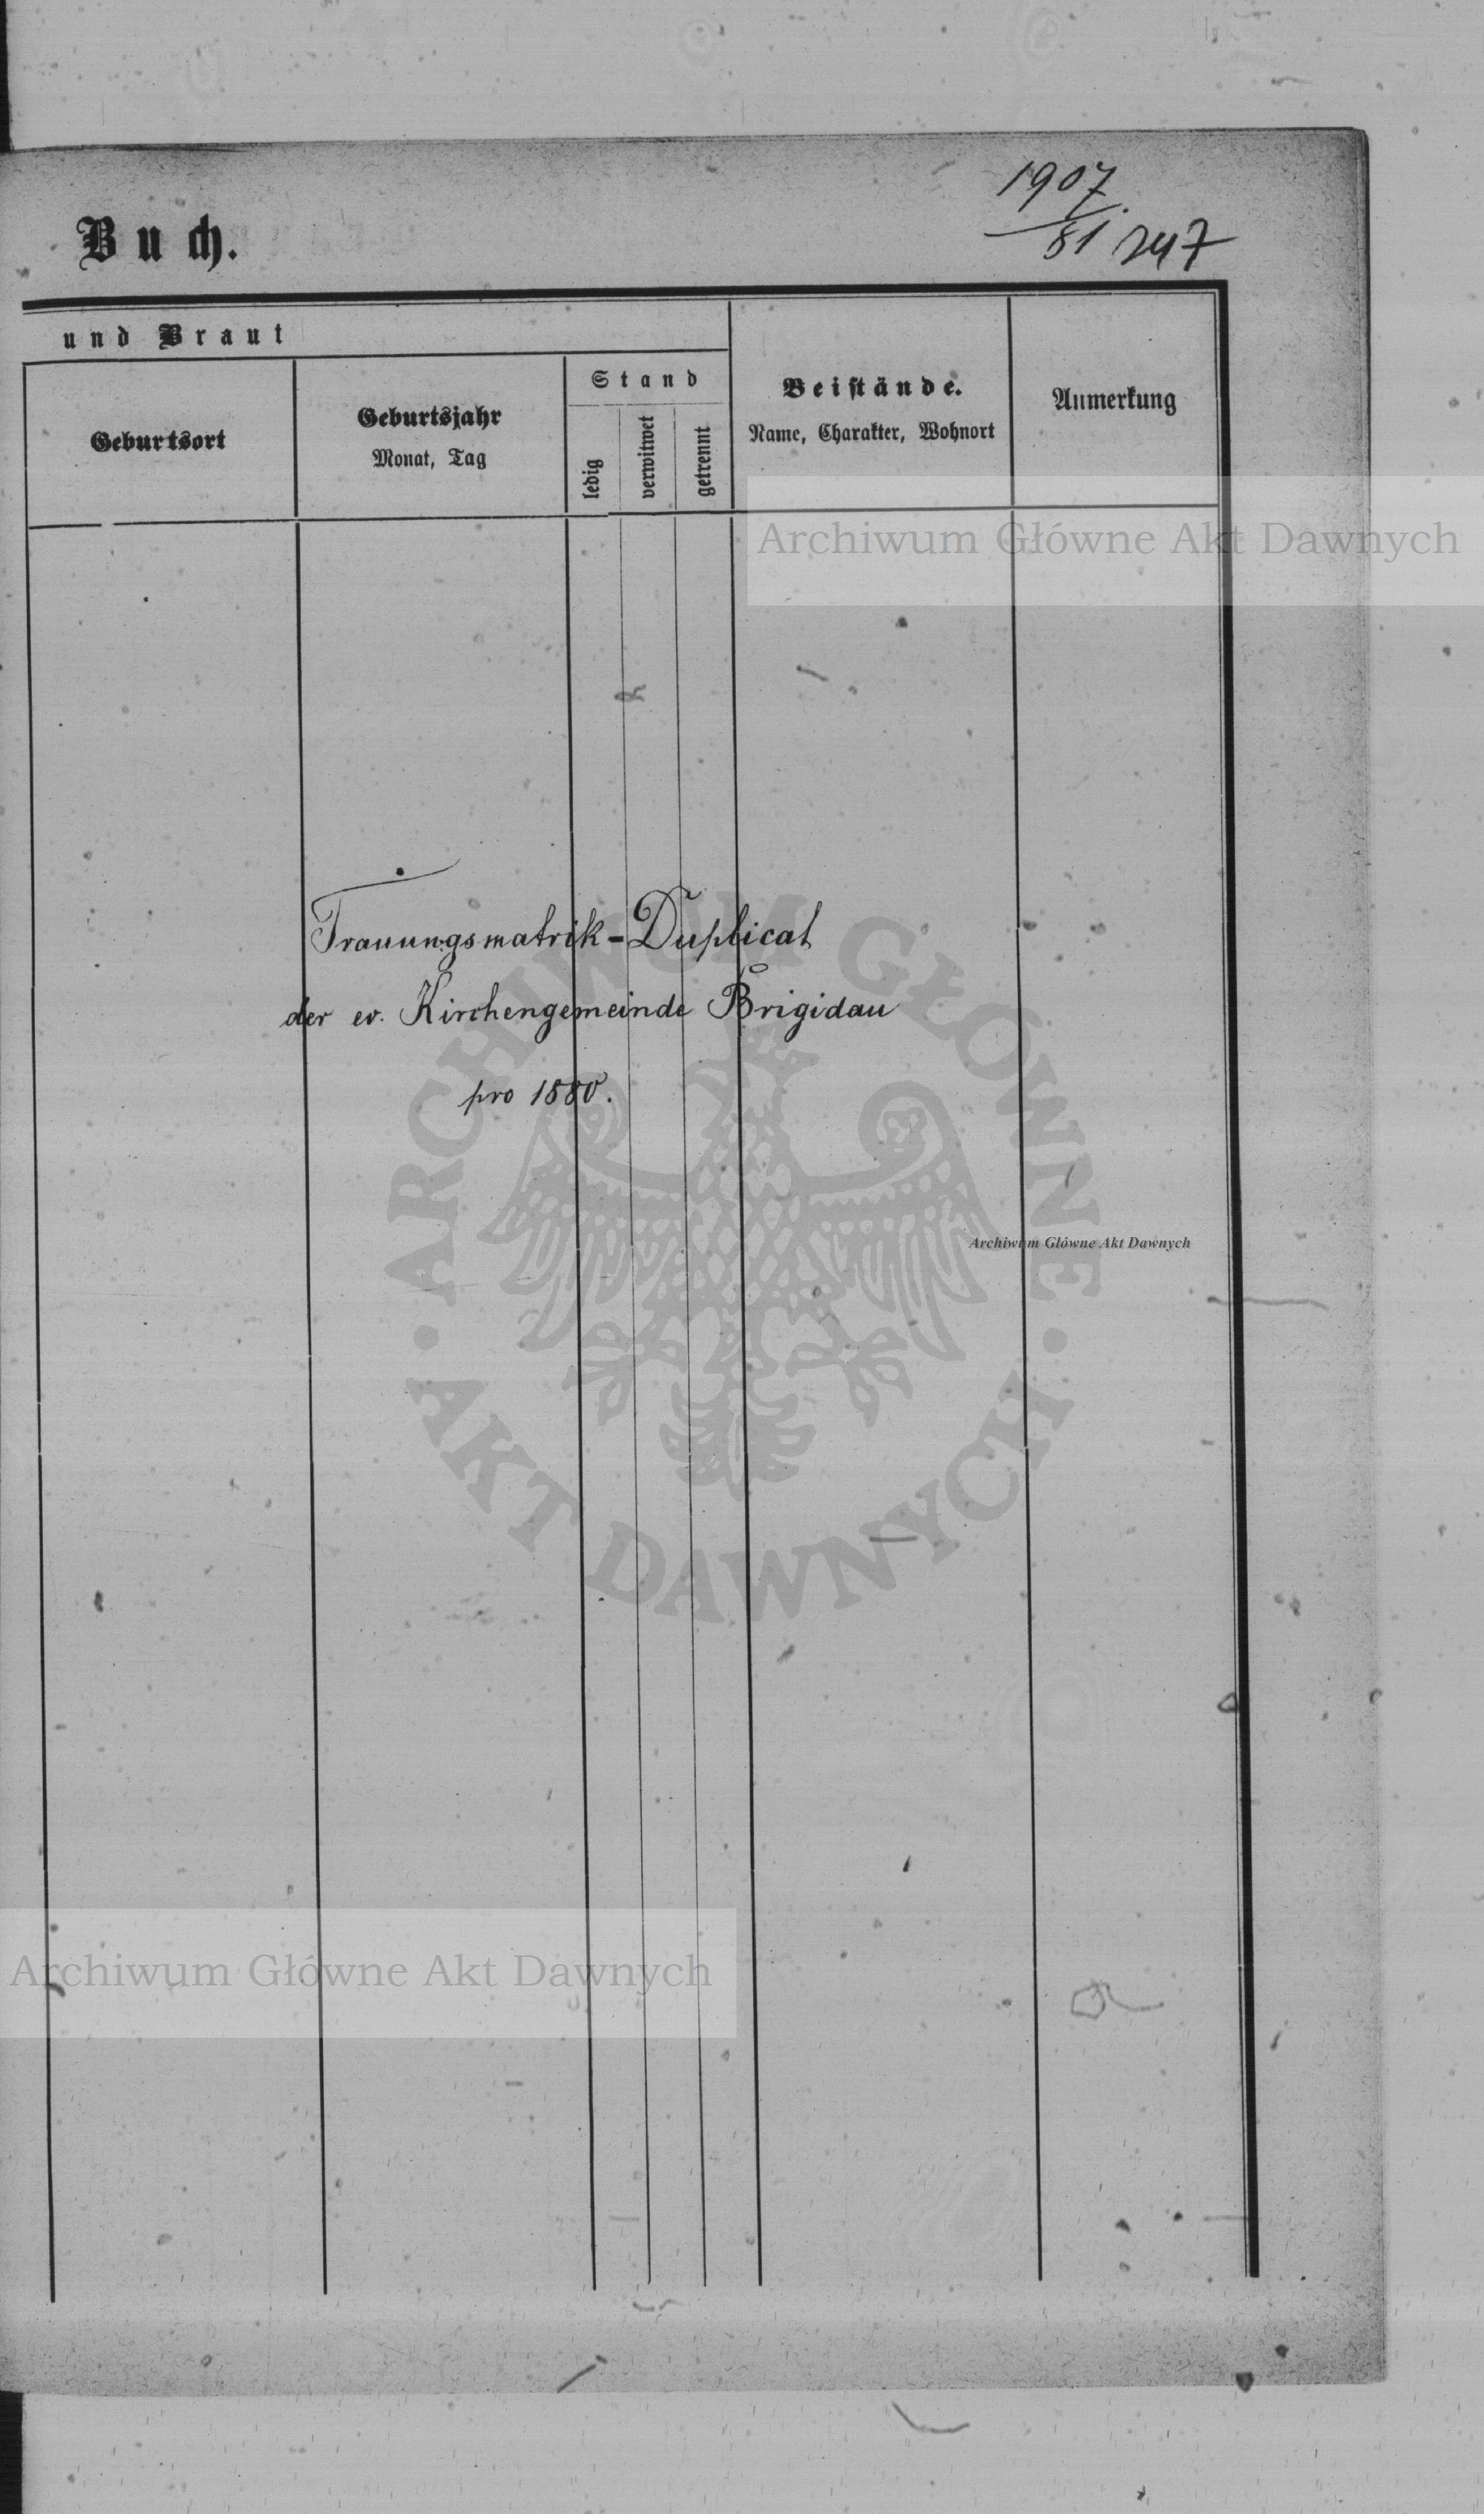 1907.
Buch.
81 247
und Braut
Stand
Beistände.
Anmerkung
Geburtsort
Geburtsjahr
Name, Charakter, Wohnort
Monat, Tag
ledig
verwitwet
getrennt
Archiwum Główne Akt Dawnych
Trauungsmatrik-Duplicat
der ev. Kirchengemeinde Brigidau
pro 1880.
ARCHIWUM GŁÓWNE
Archiwum Główne Akt Dawnych
AKT DAWNYCH
Archiwum Główne Akt Dawnych